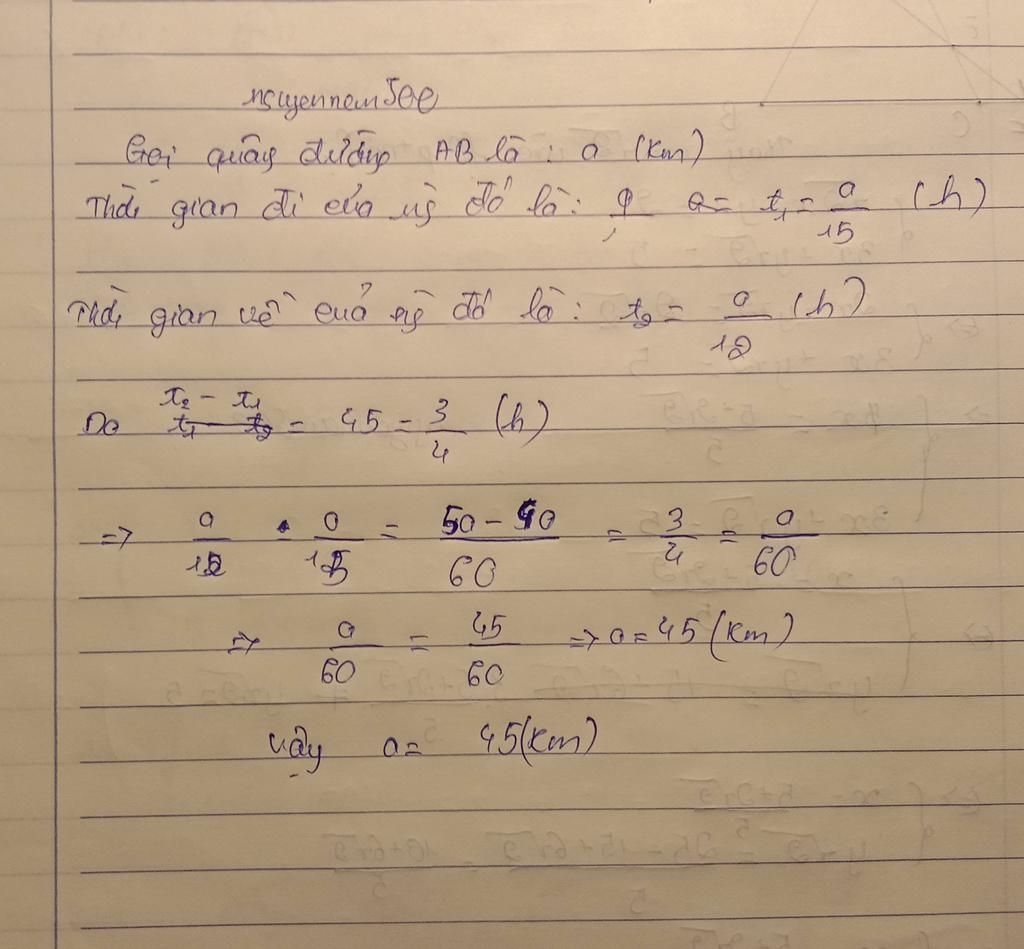 nguyennam500
Gọi quãng đường AB là : a (km)
Thời gian đi của ng đó là : t₁ = a/15 (h)
Thời gian về của ng đó là : t₂ = a/12 (h)
Do t₂ - t₁ = 45 = 3/4 (h)
=> a/12 - a/15 = 5a - 4a/60 = 3/4 = a/60
=> a/60 = 45/60 => a = 45 (km)
Vậy a = 45 (km)